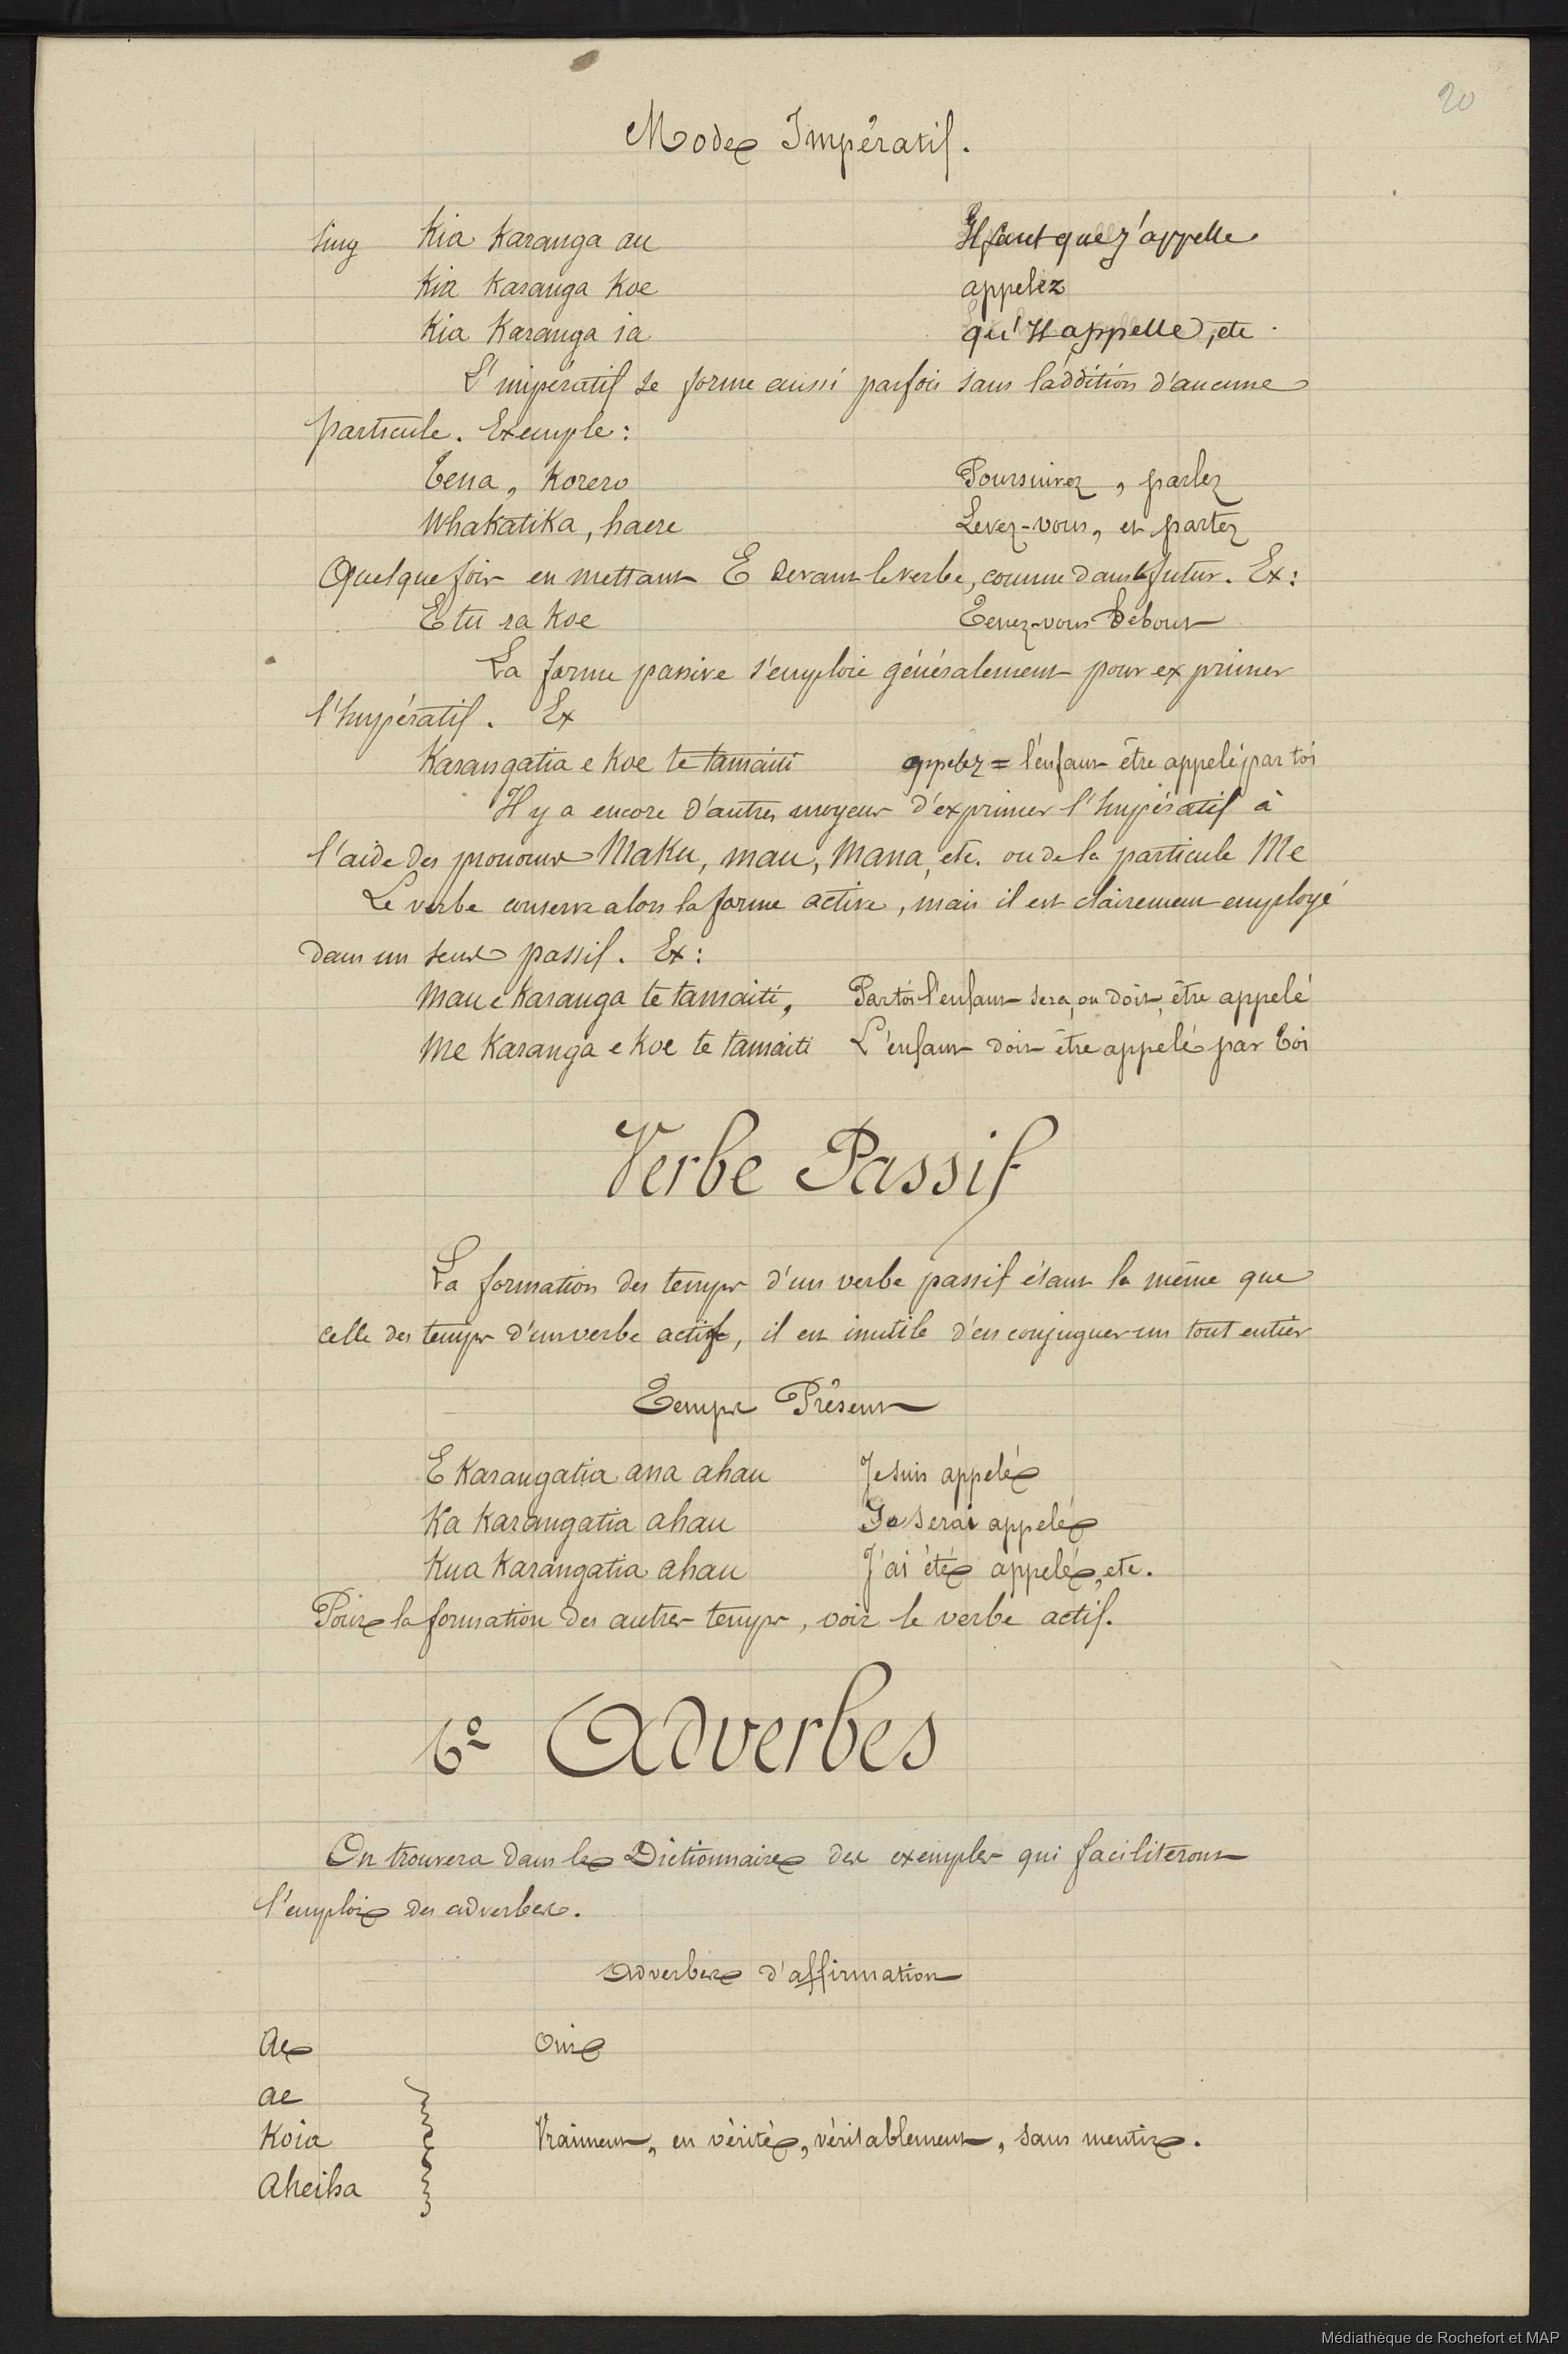 20
Mode Impératif.
Sing Kia Karanga au Il faut que j'appelle
Kia Karanga Koe appelez
Kia Karanga ia qu'Il appelle, etc.
L'impératif se forme aussi parfois sans l'addition d'aucune
particule. Exemple:
Tena, Korero Poursuivez, parlez
Whakatika, haere Levez-vous, et partez
Quelquefois en mettant E devant le verbe, comme dans le futur. Ex:
E tu ra Koe Tenez-vous debout
La forme passive s'emploie généralement pour exprimer
l'Impératif. Ex
Karangatia e Koe te tamaiti appelez = l'enfant être appelé par toi
Il y a encore d'autres moyens d'exprimer l'Impératif à
l'aide des pronoms Maku, mau, Mana, etc. ou de la particule Me
Le verbe conserve alors la forme active, mais il est clairement employé
dans un sens passif. Ex:
Mau e Karanga te tamaiti, Par toi l'enfant sera, ou doit, être appelé
Me Karanga e Koe te tamaiti L'enfant doit être appelé par Toi
Verbe Passif
La formation des temps d'un verbe passif étant la même que
celle des temps d'un verbe actif, il est inutile d'en conjuguer un tout entier
Temps Présent
E Karangatia ana ahau Je suis appelé
Ka Karangatia ahau Je serai appelé
Kua Karangatia ahau J'ai été appelé, etc.
Pour la formation des autres temps, voir le verbe actif.
6º Adverbes
On trouvera dans le Dictionnaire des exemples qui faciliteront
l'emploi des adverbes.
Adverbes d'affirmation
Ae Oui
ae
Koia Vraiment, en vérité, véritablement, sans mentir.
Aheiha
Médiathèque de Rochefort et MAP